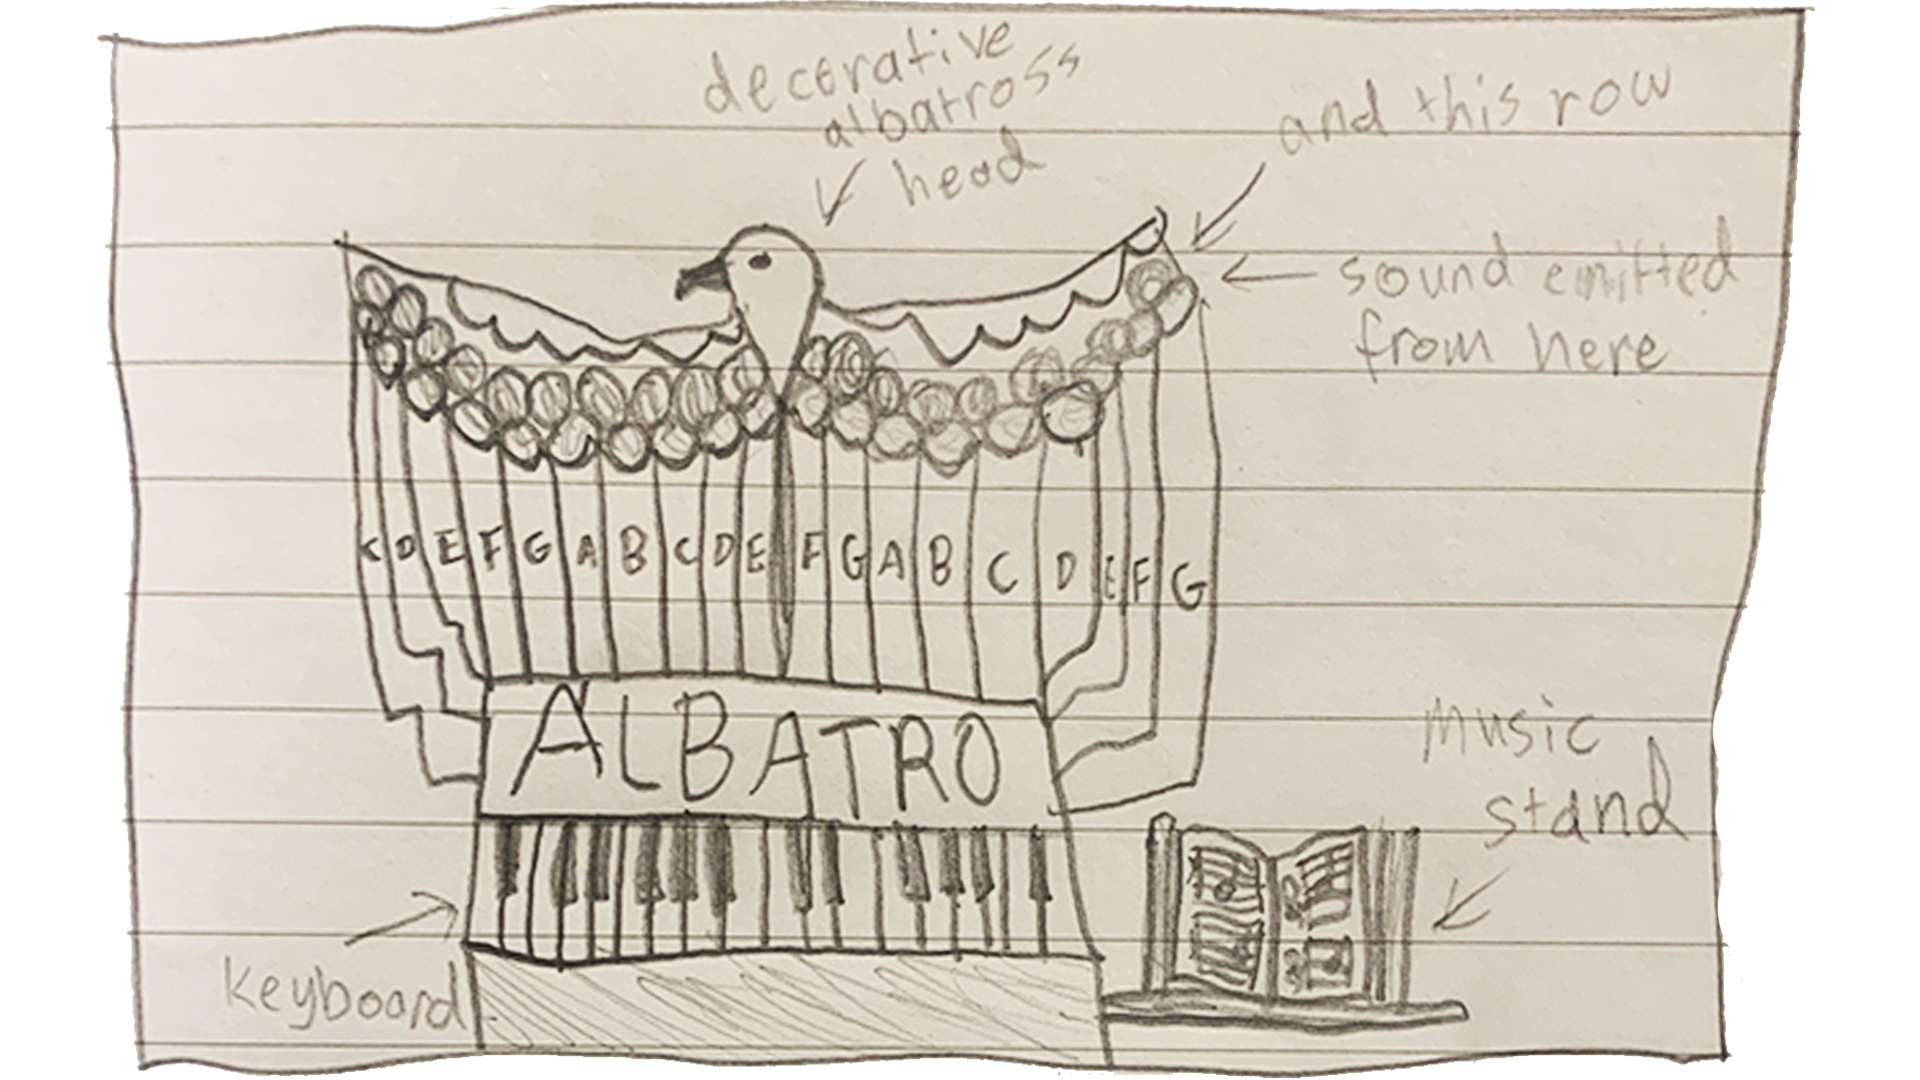 decorative
albatross
head
and this row
sound emitted
from here
C D E F G A B C D E F G A B C D E F G
ALBATRO
music
stand
keyboard